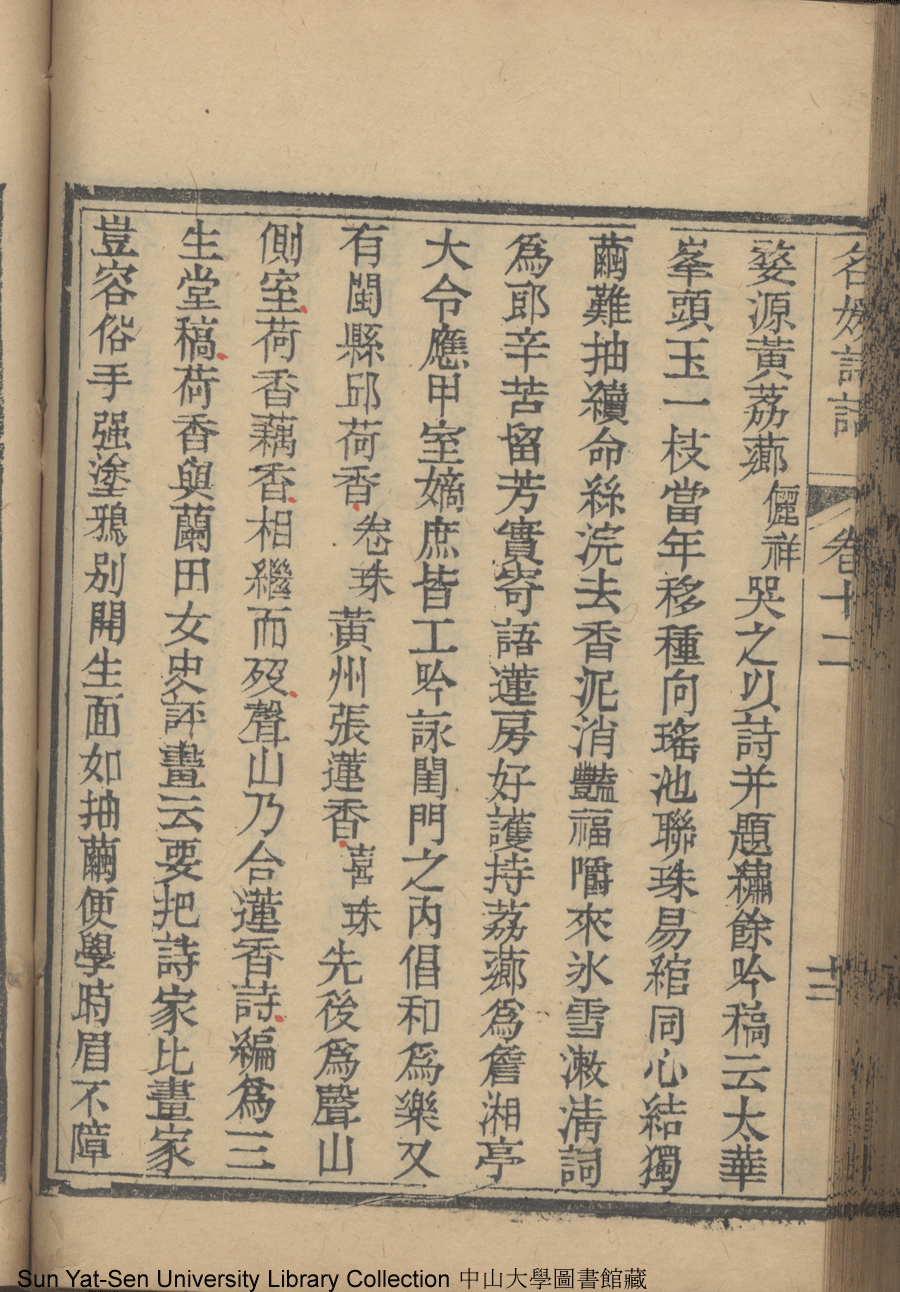 名媛詩話 卷十二 十二
婺源黃荔薌儷祥哭之以詩并題繡餘吟稿云太華
峯頭玉一枝當年移種向瑤池聯珠易綰同心結獨
繭難抽續命絲浣去香泥消豔福嚼來氷雪漱淸詞
爲郎辛苦留芳實寄語蓮房好護持荔薌爲詹湘亭
大令應甲室嫡庶皆工吟詠閨門之內倡和爲樂又
有閩縣邱荷香卷珠黃州張蓮香喜珠先後爲聲山
側室荷香藕香相繼而歿聲山乃合蓮香詩編爲三
生堂稿荷香與蘭田女史評畫云要把詩家比畫家
豈容俗手强塗鴉別開生面如抽繭便學時眉不障
Sun Yat-Sen University Library Collection 中山大學圖書館藏